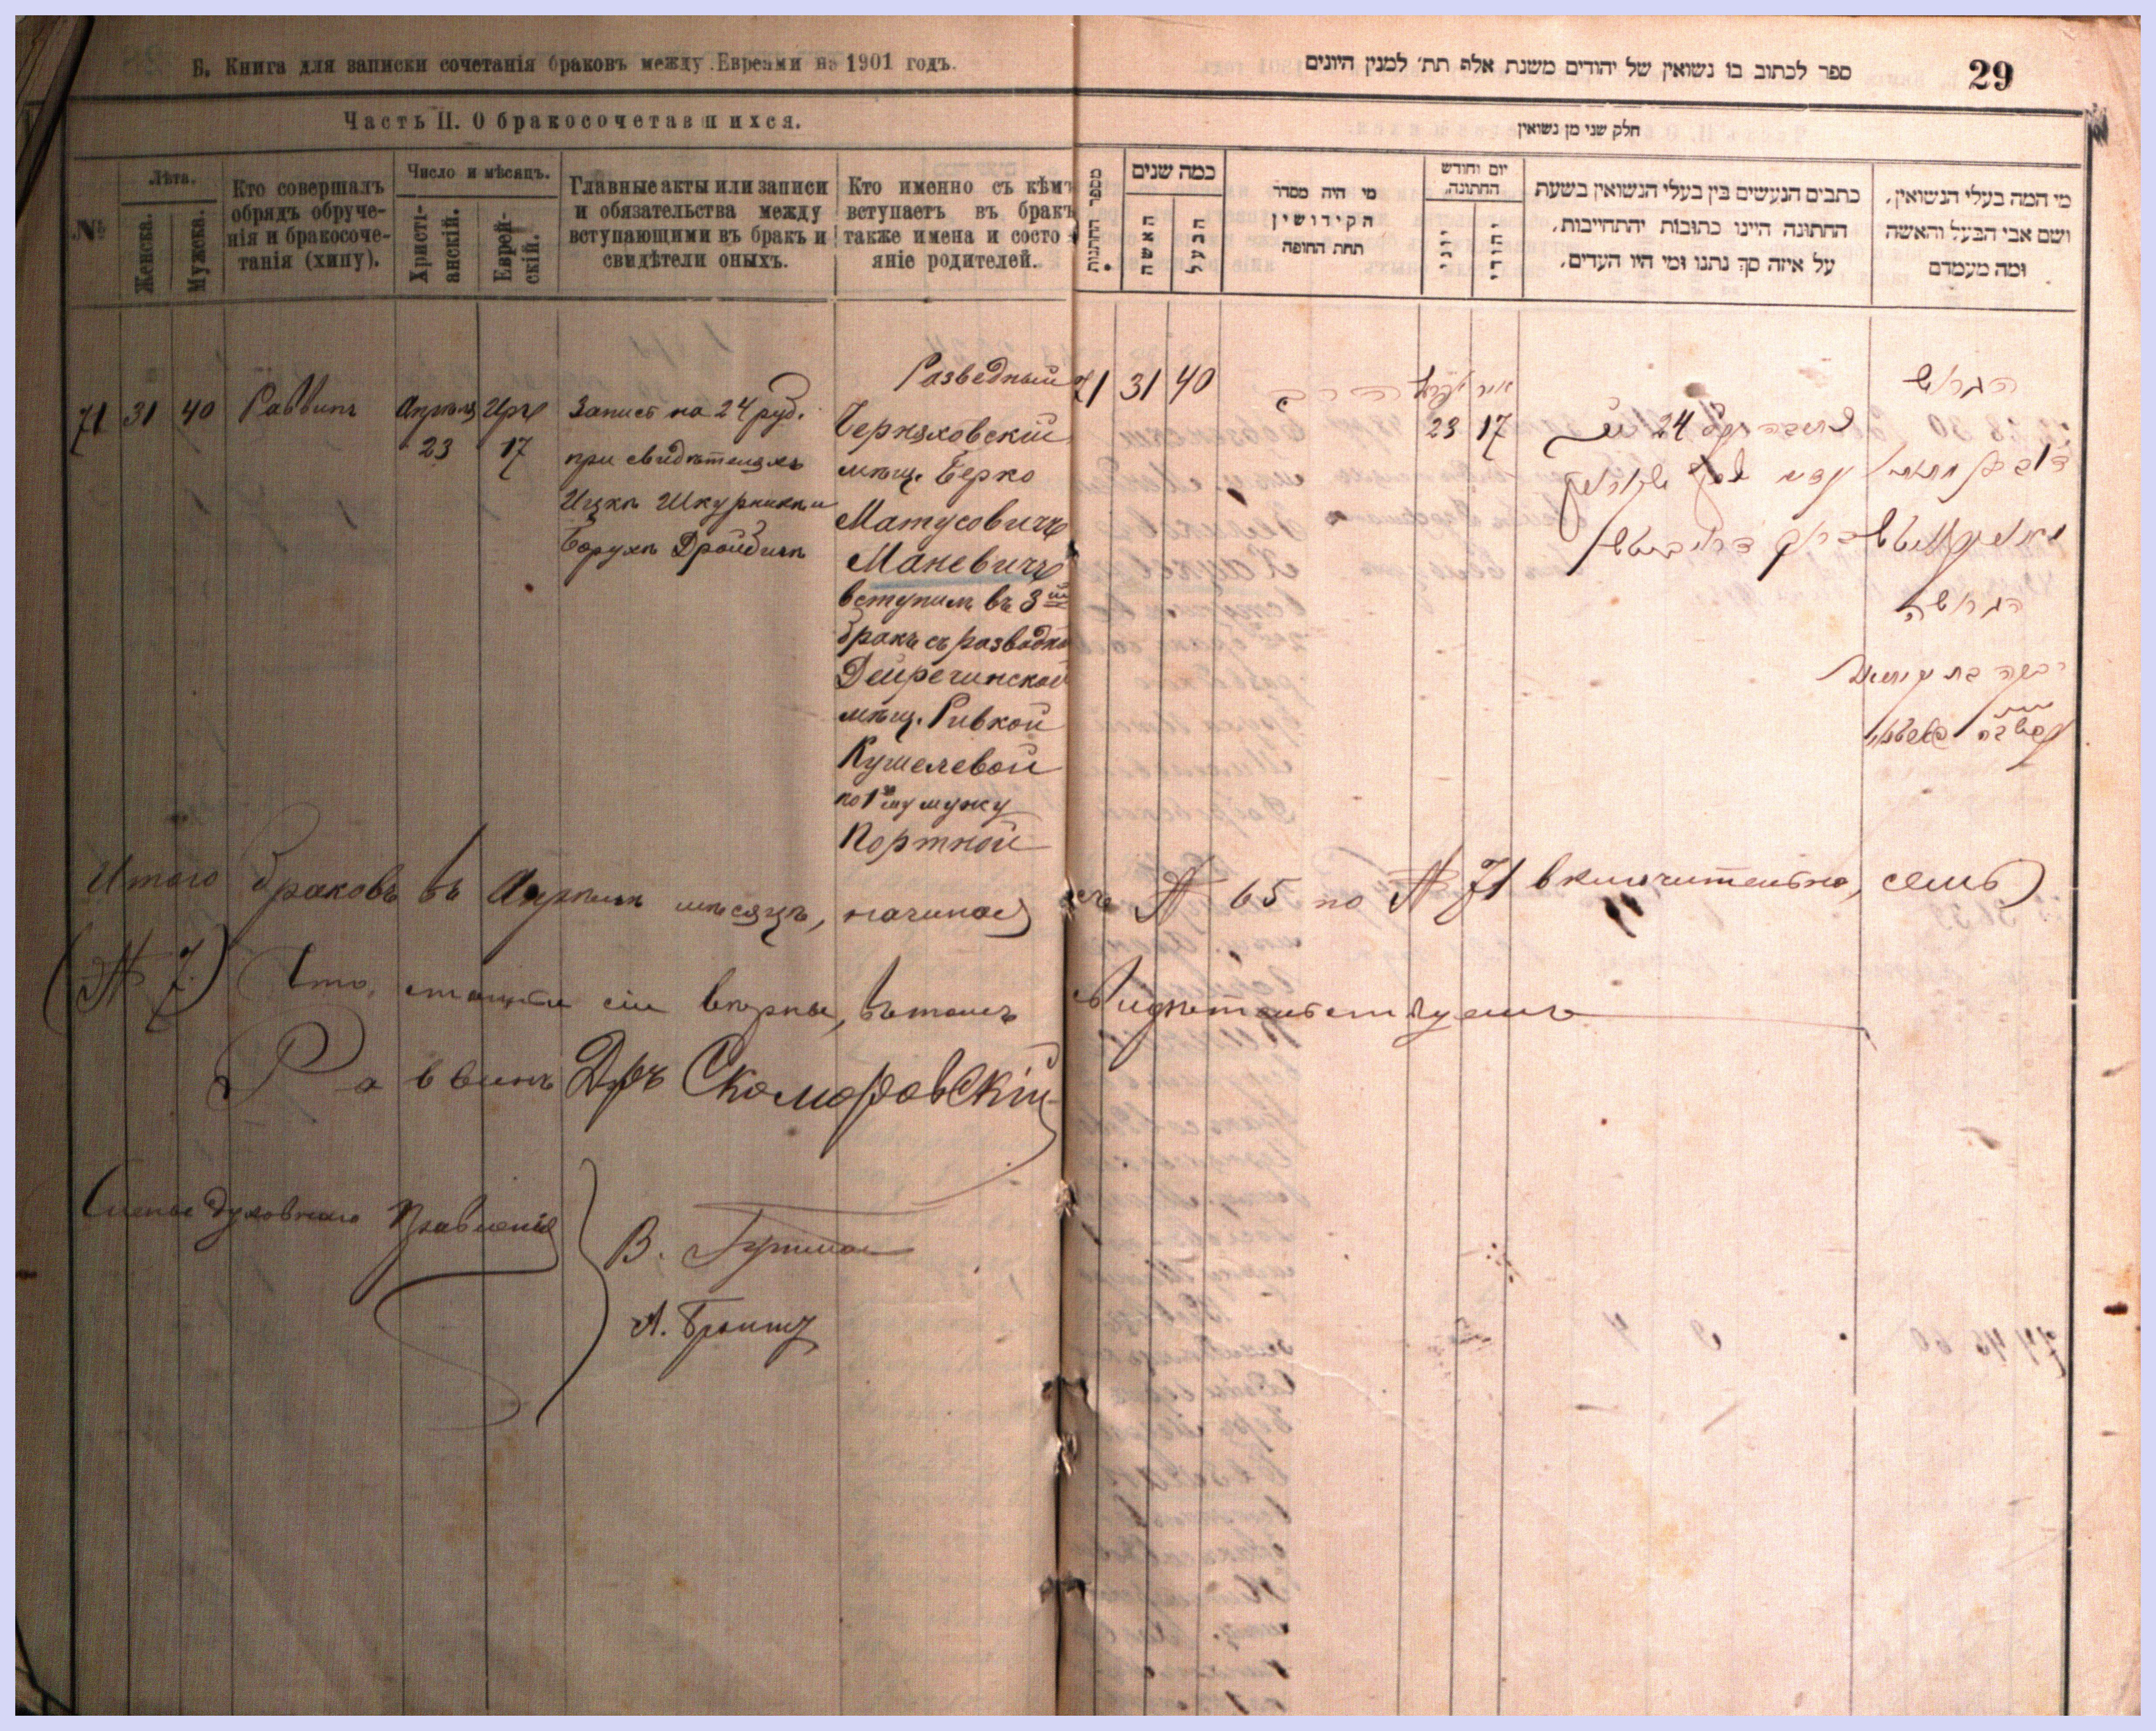 Б. Книга для записки сочетанія браковъ между Евреями на 1901 годъ.
Часть II. О бракосочетавшихся.
№
Лѣта.
Женска.
Мужска.
Кто совершалъ
обрядъ обруче-
нія и бракосоче-
танія (хипу).
Число и мѣсяцъ.
Христі-
анскій.
Еврей-
скій.
Главные акты или записи
и обязательства между
вступающими въ бракъ и
свидѣтели оныхъ.
Кто именно съ кѣмъ
вступаетъ въ бракъ
также имена и состо-
яніе родителей.
71 31 40 Раввинъ
Апрѣля 23
Иръ 17
Запись на 24 руб.
при свидѣтеляхъ
Ицкѣ Шкурникѣ и
Борухѣ Дройбичѣ
Разведный
Черняховскій
мѣщ. Берко
Матусовичъ
Маневичъ
вступилъ въ 3ій
бракъ съ разводкой
Дейречинской
мѣщ. Ривкой
Кушелевой
по 1му мужу
Портной
ספר לכתוב בו נשואין של יהודים משנת אלף תת׳ למנין היונים
29
חלק שני מן נשואין
מספר החתונות
כמה שנים
האשה
הבעל
מי היה מסדר
הקידושין
תחת החופה
יום וחודש
החתונה.
יוני
יהודי
כתבים הנעשים בין בעלי הנשואין בשעת
החתונה היינו כתובות יהתחייבות,
על איזה סך נתנו ומי היו העדים.
מי המה בעלי הנשואין,
ושם אבי הבעל והאשה
ומה מעמדם
71 31 40
הרב
23
איר 17
24
הגרוש
הגרושה
Итого браковъ въ Апрѣлѣ мѣсяцѣ, начиная съ № 65 по № 71 включительно, семь
(№ 7.) Что статьи сіи вѣрны, въ томъ свидѣтельствуемъ
Раввинъ Дръ Скоморовскій
Члены Духовнаго Правленія
В. Гутман